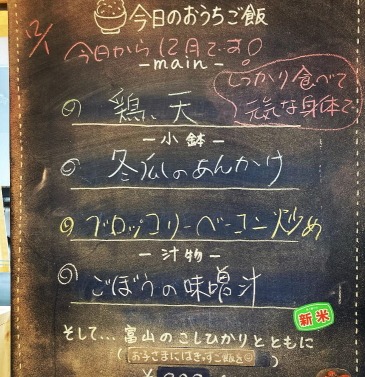 今日のおうちご飯
今日から12月です。
-main-
しっかり食べて
元気な身体で
鶏、天
-小鉢-
冬瓜のあんかけ
ブロッコリーベーコン炒め
-汁物-
ごぼうの味噌汁
新米
そして...富山のこしひかりとともに